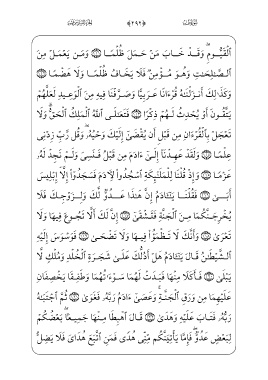 ٱلْقَيُّومِ ۖ وَقَدْ خَابَ مَنْ حَمَلَ ظُلْمًا وَمَن يَعْمَلْ مِنَ
ٱلصَّٰلِحَٰتِ وَهُوَ مُؤْمِنٌ فَلَا يَخَافُ ظُلْمًا وَلَا هَضْمًا
وَكَذَٰلِكَ أَنزَلْنَٰهُ قُرْءَانًا عَرَبِيًّا وَصَرَّفْنَا فِيهِ مِنَ ٱلْوَعِيدِ لَعَلَّهُمْ
يَتَّقُونَ أَوْ يُحْدِثُ لَهُمْ ذِكْرًا فَتَعَٰلَى ٱللَّهُ ٱلْمَلِكُ ٱلْحَقُّ ۗ وَلَا
تَعْجَلْ بِٱلْقُرْءَانِ مِن قَبْلِ أَن يُقْضَىٰٓ إِلَيْكَ وَحْيُهُۥ ۖ وَقُل رَّبِّ زِدْنِى
عِلْمًا وَلَقَدْ عَهِدْنَآ إِلَىٰٓ ءَادَمَ مِن قَبْلُ فَنَسِىَ وَلَمْ نَجِدْ لَهُۥ
عَزْمًا وَإِذْ قُلْنَا لِلْمَلَٰٓئِكَةِ ٱسْجُدُوا۟ لِءَادَمَ فَسَجَدُوٓا۟ إِلَّآ إِبْلِيسَ
أَبَىٰ فَقُلْنَا يَٰٓـَٔادَمُ إِنَّ هَٰذَا عَدُوٌّ لَّكَ وَلِزَوْجِكَ فَلَا
يُخْرِجَنَّكُمَا مِنَ ٱلْجَنَّةِ فَتَشْقَىٰٓ إِنَّ لَكَ أَلَّا تَجُوعَ فِيهَا وَلَا
تَعْرَىٰ وَأَنَّكَ لَا تَظْمَؤُا۟ فِيهَا وَلَا تَضْحَىٰ فَوَسْوَسَ إِلَيْهِ
ٱلشَّيْطَٰنُ قَالَ يَٰٓـَٔادَمُ هَلْ أَدُلُّكَ عَلَىٰ شَجَرَةِ ٱلْخُلْدِ وَمُلْكٍ لَّا
يَبْلَىٰ فَأَكَلَا مِنْهَا فَبَدَتْ لَهُمَا سَوْءَٰتُهُمَا وَطَفِقَا يَخْصِفَانِ
عَلَيْهِمَا مِن وَرَقِ ٱلْجَنَّةِ ۚ وَعَصَىٰٓ ءَادَمُ رَبَّهُۥ فَغَوَىٰ ثُمَّ ٱجْتَبَٰهُ
رَبُّهُۥ فَتَابَ عَلَيْهِ وَهَدَىٰ قَالَ ٱهْبِطَا مِنْهَا جَمِيعًۢا ۖ بَعْضُكُمْ
لِبَعْضٍ عَدُوٌّ ۖ فَإِمَّا يَأْتِيَنَّكُم مِّنِّى هُدًى فَمَنِ ٱتَّبَعَ هُدَاىَ فَلَا يَضِلُّ